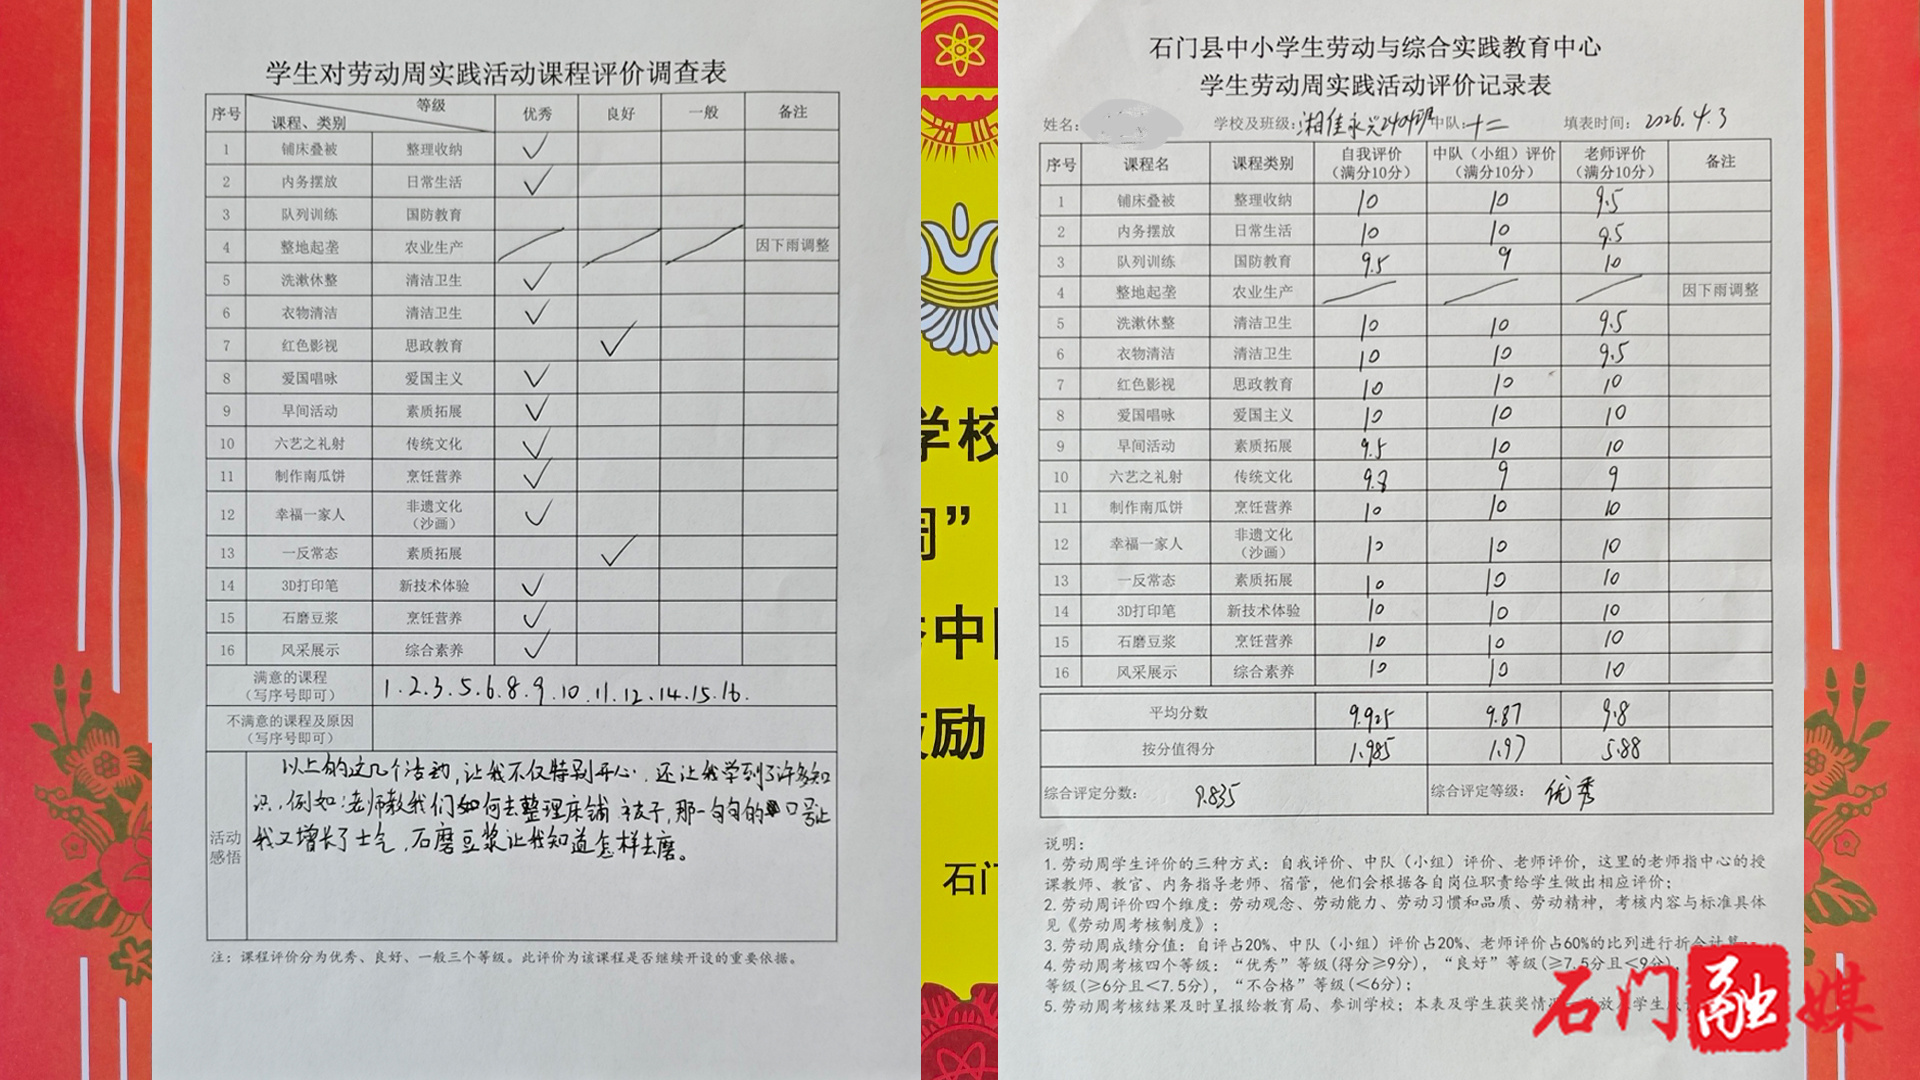 学生对劳动周实践活动课程评价调查表
序号 等级 课程、类别 优秀 良好 一般 备注
1 铺床叠被 整理收纳 ✓
2 内务摆放 日常生活 ✓
3 队列训练 国防教育
4 整地起垄 农业生产 ／ ／ ／ 因下雨调整
5 洗漱休整 清洁卫生 ✓
6 衣物清洁 清洁卫生 ✓
7 红色影视 思政教育 ✓
8 爱国唱咏 爱国主义 ✓
9 早间活动 素质拓展 ✓
10 六艺之礼射 传统文化 ✓
11 制作南瓜饼 烹饪营养 ✓
12 幸福一家人 非遗文化（沙画） ✓
13 一反常态 素质拓展 ✓
14 3D打印笔 新技术体验 ✓
15 石磨豆浆 烹饪营养 ✓
16 风采展示 综合素养 ✓
满意的课程（写序号即可） 1.2.3.5.6.8.9.10.11.12.14.15.16.
不满意的课程及原因（写序号即可）
活动感悟
以上的这几个活动，让我不仅特别开心，还让我学到了许多知
识，例如：老师教我们如何去整理床铺 被子，那一句句的口号让
我又增长了士气，石磨豆浆让我知道怎样去磨。
注：课程评价分为优秀、良好、一般三个等级。此评价为该课程是否继续开设的重要依据。
学校
周”
中
励
石门
石门县中小学生劳动与综合实践教育中心
学生劳动周实践活动评价记录表
姓名： 学校及班级：湘佳永兴2404班 中队：十二 填表时间：2026.4.3
序号 课程名 课程类别 自我评价（满分10分） 中队（小组）评价（满分10分） 老师评价（满分10分） 备注
1 铺床叠被 整理收纳 10 10 9.5
2 内务摆放 日常生活 10 10 9.5
3 队列训练 国防教育 9.5 9 10
4 整地起垄 农业生产 ／ ／ ／ 因下雨调整
5 洗漱休整 清洁卫生 10 10 9.5
6 衣物清洁 清洁卫生 10 10 9.5
7 红色影视 思政教育 10 10 10
8 爱国唱咏 爱国主义 10 10 10
9 早间活动 素质拓展 9.5 10 10
10 六艺之礼射 传统文化 9.8 9 9
11 制作南瓜饼 烹饪营养 10 10 10
12 幸福一家人 非遗文化（沙画） 10 10 10
13 一反常态 素质拓展 10 10 10
14 3D打印笔 新技术体验 10 10 10
15 石磨豆浆 烹饪营养 10 10 10
16 风采展示 综合素养 10 10 10
平均分数 9.925 9.87 9.8
按分值得分 1.985 1.97 5.88
综合评定分数： 9.835 综合评定等级： 优秀
说明：
1. 劳动周学生评价的三种方式：自我评价、中队（小组）评价、老师评价，这里的老师指中心的授
课教师、教官、内务指导老师、宿管，他们会根据各自岗位职责给学生做出相应评价；
2. 劳动周评价四个维度：劳动观念、劳动能力、劳动习惯和品质、劳动精神，考核内容与标准具体
见《劳动周考核制度》；
3. 劳动周成绩分值：自评占20%、中队（小组）评价占20%、老师评价占60%的比列进行折合计算
4. 劳动周考核四个等级：“优秀”等级(得分≥9分)，“良好”等级(≥7.5分且＜9分)
等级(≥6分且＜7.5分)，“不合格”等级(＜6分)；
5. 劳动周考核结果及时呈报给教育局、参训学校；本表及学生获奖情
石门融媒